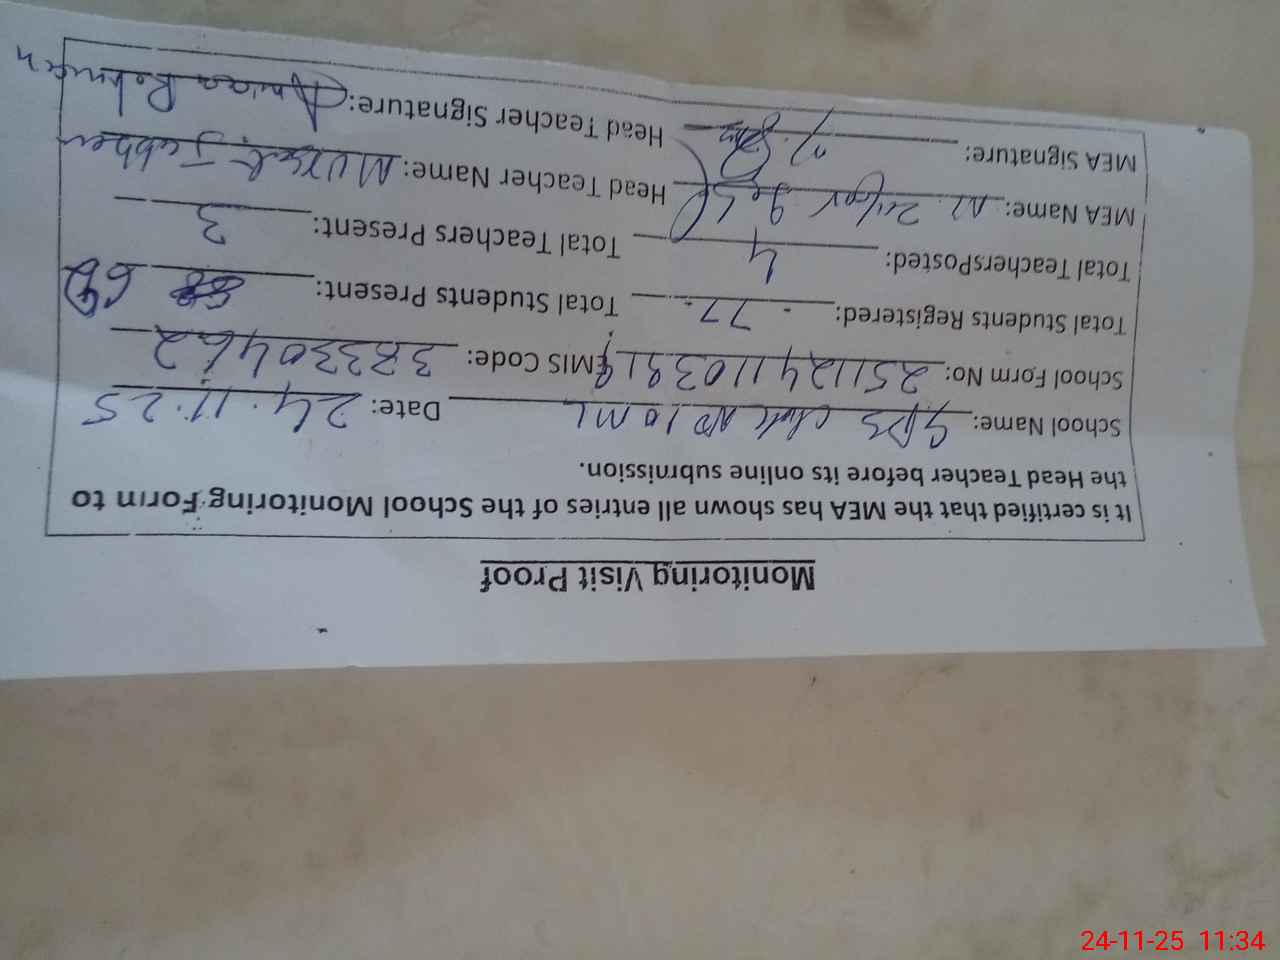 Monitoring Visit Proof
It is certified that the MEA has shown all entries of the School Monitoring Form to
the Head Teacher before its online submission.
School Name: GPS Chak No 10 ML Date: 24.11.25
School Form No: EMIS Code: 38330462
Total Students Registered: 77 Total Students Present: 62
Total TeachersPosted: 4 Total Teachers Present: 3
MEA Name: M. Zafar Head Teacher Name:
MEA Signature: Head Teacher Signature:
24-11-25 11:34